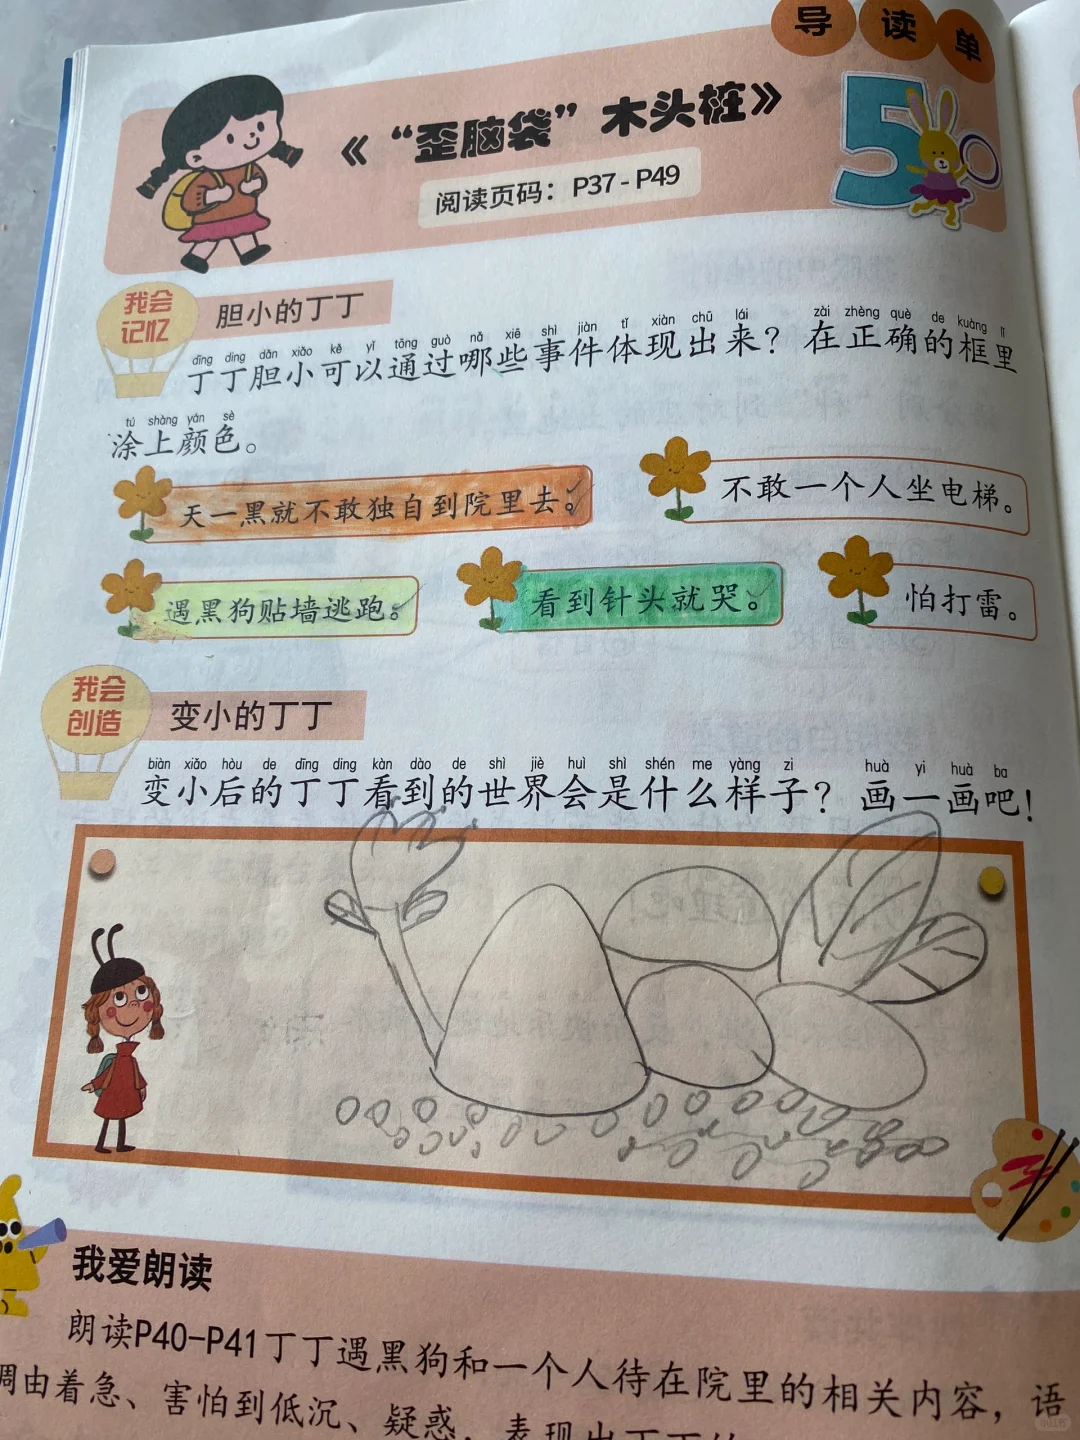 导读单
《“歪脑袋”木头桩》
5
阅读页码：P37-P49
我会
记忆
胆小的丁丁
dīng ding dǎn xiǎo kě yǐ tōng guò nǎ xiē shì jiàn tǐ xiàn chū lái zài zhèng què de kuàng lǐ
丁丁胆小可以通过哪些事件体现出来？在正确的框里
tú shàng yán sè
涂上颜色。
天一黑就不敢独自到院里去。
不敢一个人坐电梯。
遇黑狗贴墙逃跑。
看到针头就哭。
怕打雷。
我会
创造
变小的丁丁
biàn xiǎo hòu de dīng ding kàn dào de shì jiè huì shì shén me yàng zi huà yi huà ba
变小后的丁丁看到的世界会是什么样子？画一画吧！
我爱朗读
朗读P40-P41丁丁遇黑狗和一个人待在院里的相关内容，语
调由着急、害怕到低沉、疑惑，表现出丁丁的